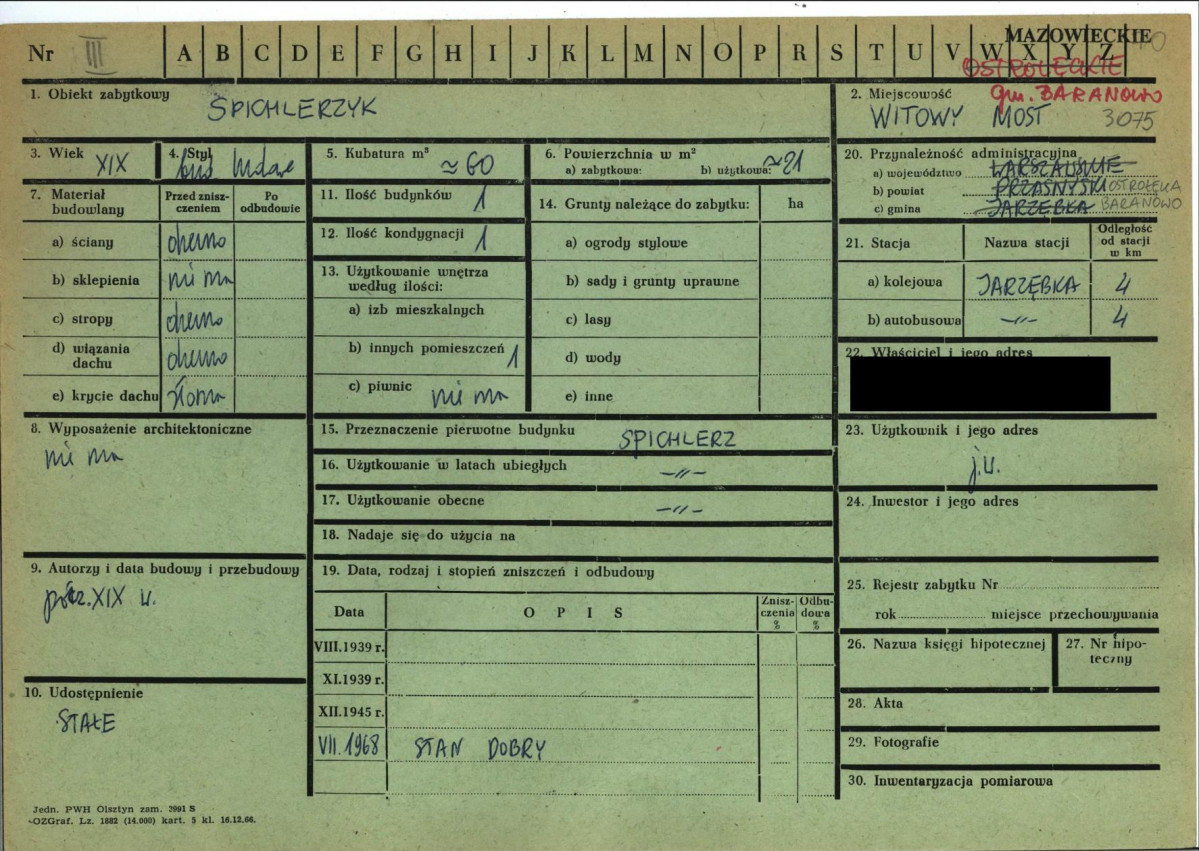 Nr III A B C D E F G H I J K L M N O P R S T U V W X Y Z MAZOWIECKIE
OSTROŁĘCKIE
1. Obiekt zabytkowy
SPICHLERZYK
2. Miejscowość gm. BARANOWO
WITOWY MOST 3075
3. Wiek XIX
4. Styl
5. Kubatura m³ ≈ 60
6. Powierzchnia w m²
a) zabytkowa: b) użytkowa: ≈ 21
20. Przynależność administracyjna
a) województwo WARSZAWSKIE
b) powiat PRZASNYSKI OSTROŁĘKA
c) gmina JARZĘBKA BARANOWO
7. Materiał budowlany
Przed zniszczeniem
Po odbudowie
a) ściany drewno
b) sklepienia nie ma
c) stropy drewno
d) wiązania dachu drewno
e) krycie dachu słoma
11. Ilość budynków 1
12. Ilość kondygnacji 1
13. Użytkowanie wnętrza według ilości:
a) izb mieszkalnych
b) innych pomieszczeń 1
c) piwnic nie ma
14. Grunty należące do zabytku: ha
a) ogrody stylowe
b) sady i grunty uprawne
c) lasy
d) wody
e) inne
21. Stacja Nazwa stacji Odległość od stacji w km
a) kolejowa JARZĘBKA 4
b) autobusowa -〃- 4
22. Właściciel i jego adres
8. Wyposażenie architektoniczne
nie ma
15. Przeznaczenie pierwotne budynku SPICHLERZ
16. Użytkowanie w latach ubiegłych -〃-
17. Użytkowanie obecne -〃-
18. Nadaje się do użycia na
23. Użytkownik i jego adres
j.w.
24. Inwestor i jego adres
9. Autorzy i data budowy i przebudowy
XIX w.
19. Data, rodzaj i stopień zniszczeń i odbudowy
Data OPIS Zniszczenia % Odbudowa %
VIII.1939 r.
XI.1939 r.
XII.1945 r.
VII.1968 STAN DOBRY
25. Rejestr zabytku Nr
rok miejsce przechowywania
26. Nazwa księgi hipotecznej
27. Nr hipoteczny
10. Udostępnienie
STAŁE
28. Akta
29. Fotografie
30. Inwentaryzacja pomiarowa
Jedn. PWH Olsztyn zam. 2991 S
OZGraf. Lz. 1882 (14.000) kart. 5 kl. 16.12.66.